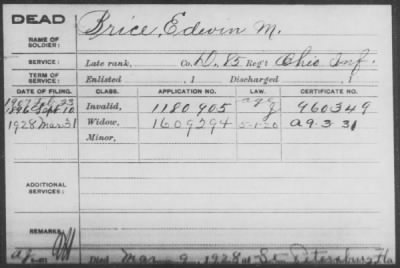 DEAD
NAME OF SOLDIER: Brice, Edwin M.
SERVICE: Late rank, Co. D, 85 Reg't Ohio Inf.
TERM OF SERVICE: Enlisted , 1 Discharged , 1
DATE OF FILING. CLASS. APPLICATION NO. LAW. CERTIFICATE NO.
1907 Feb. 23
1896 Sept 10 Invalid, 1180905 960349
1928 Mar 31 Widow, 1609294 5-1-20 a9.3.31
Minor,
ADDITIONAL SERVICES:
REMARKS:
Died Mar 9, 1928 at St. Petersburg Fla